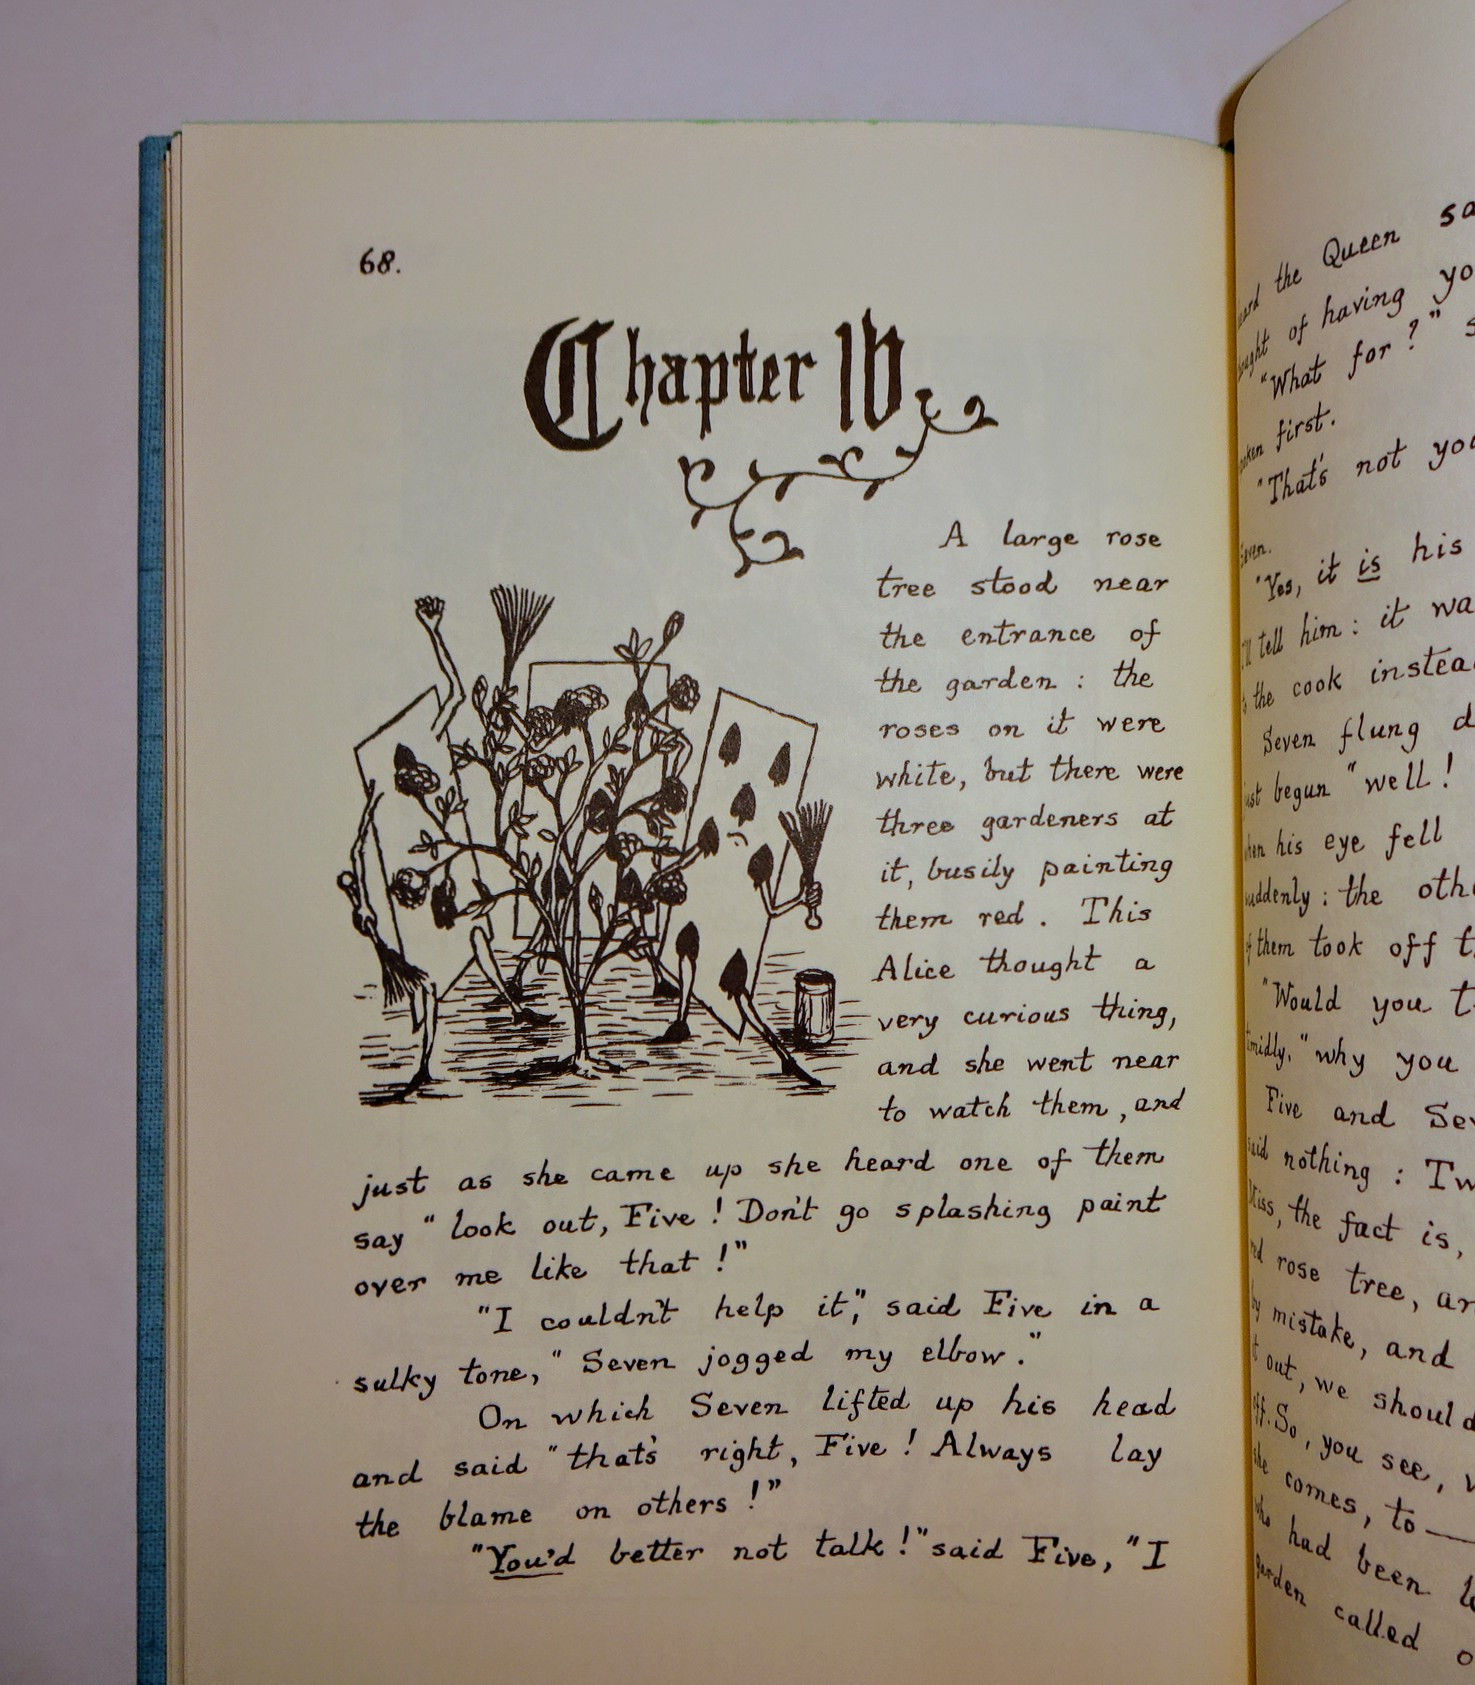 68.
Chapter IV.
A large rose
tree stood near
the entrance of
the garden : the
roses on it were
white, but there were
three gardeners at
it, busily painting
them red. This
Alice thought a
very curious thing,
and she went near
to watch them, and
just as she came up she heard one of them
say " look out, Five ! Don't go splashing paint
over me like that !"
"I couldn't help it," said Five in a
sulky tone, " Seven jogged my elbow."
On which Seven lifted up his head
and said "that's right, Five ! Always lay
the blame on others !"
"You'd better not talk !" said Five, "I
the Queen
of having
"What for ?"
first.
"That's not
"Yes, it is his
tell him : it
the cook
Seven flung
begun "well !
his eye fell
: the
them took off
"Would you
" why you
Five and
nothing : 
the fact is,
rose tree,
by mistake, and
out, we
So, you see,
comes, to —
had been
garden called